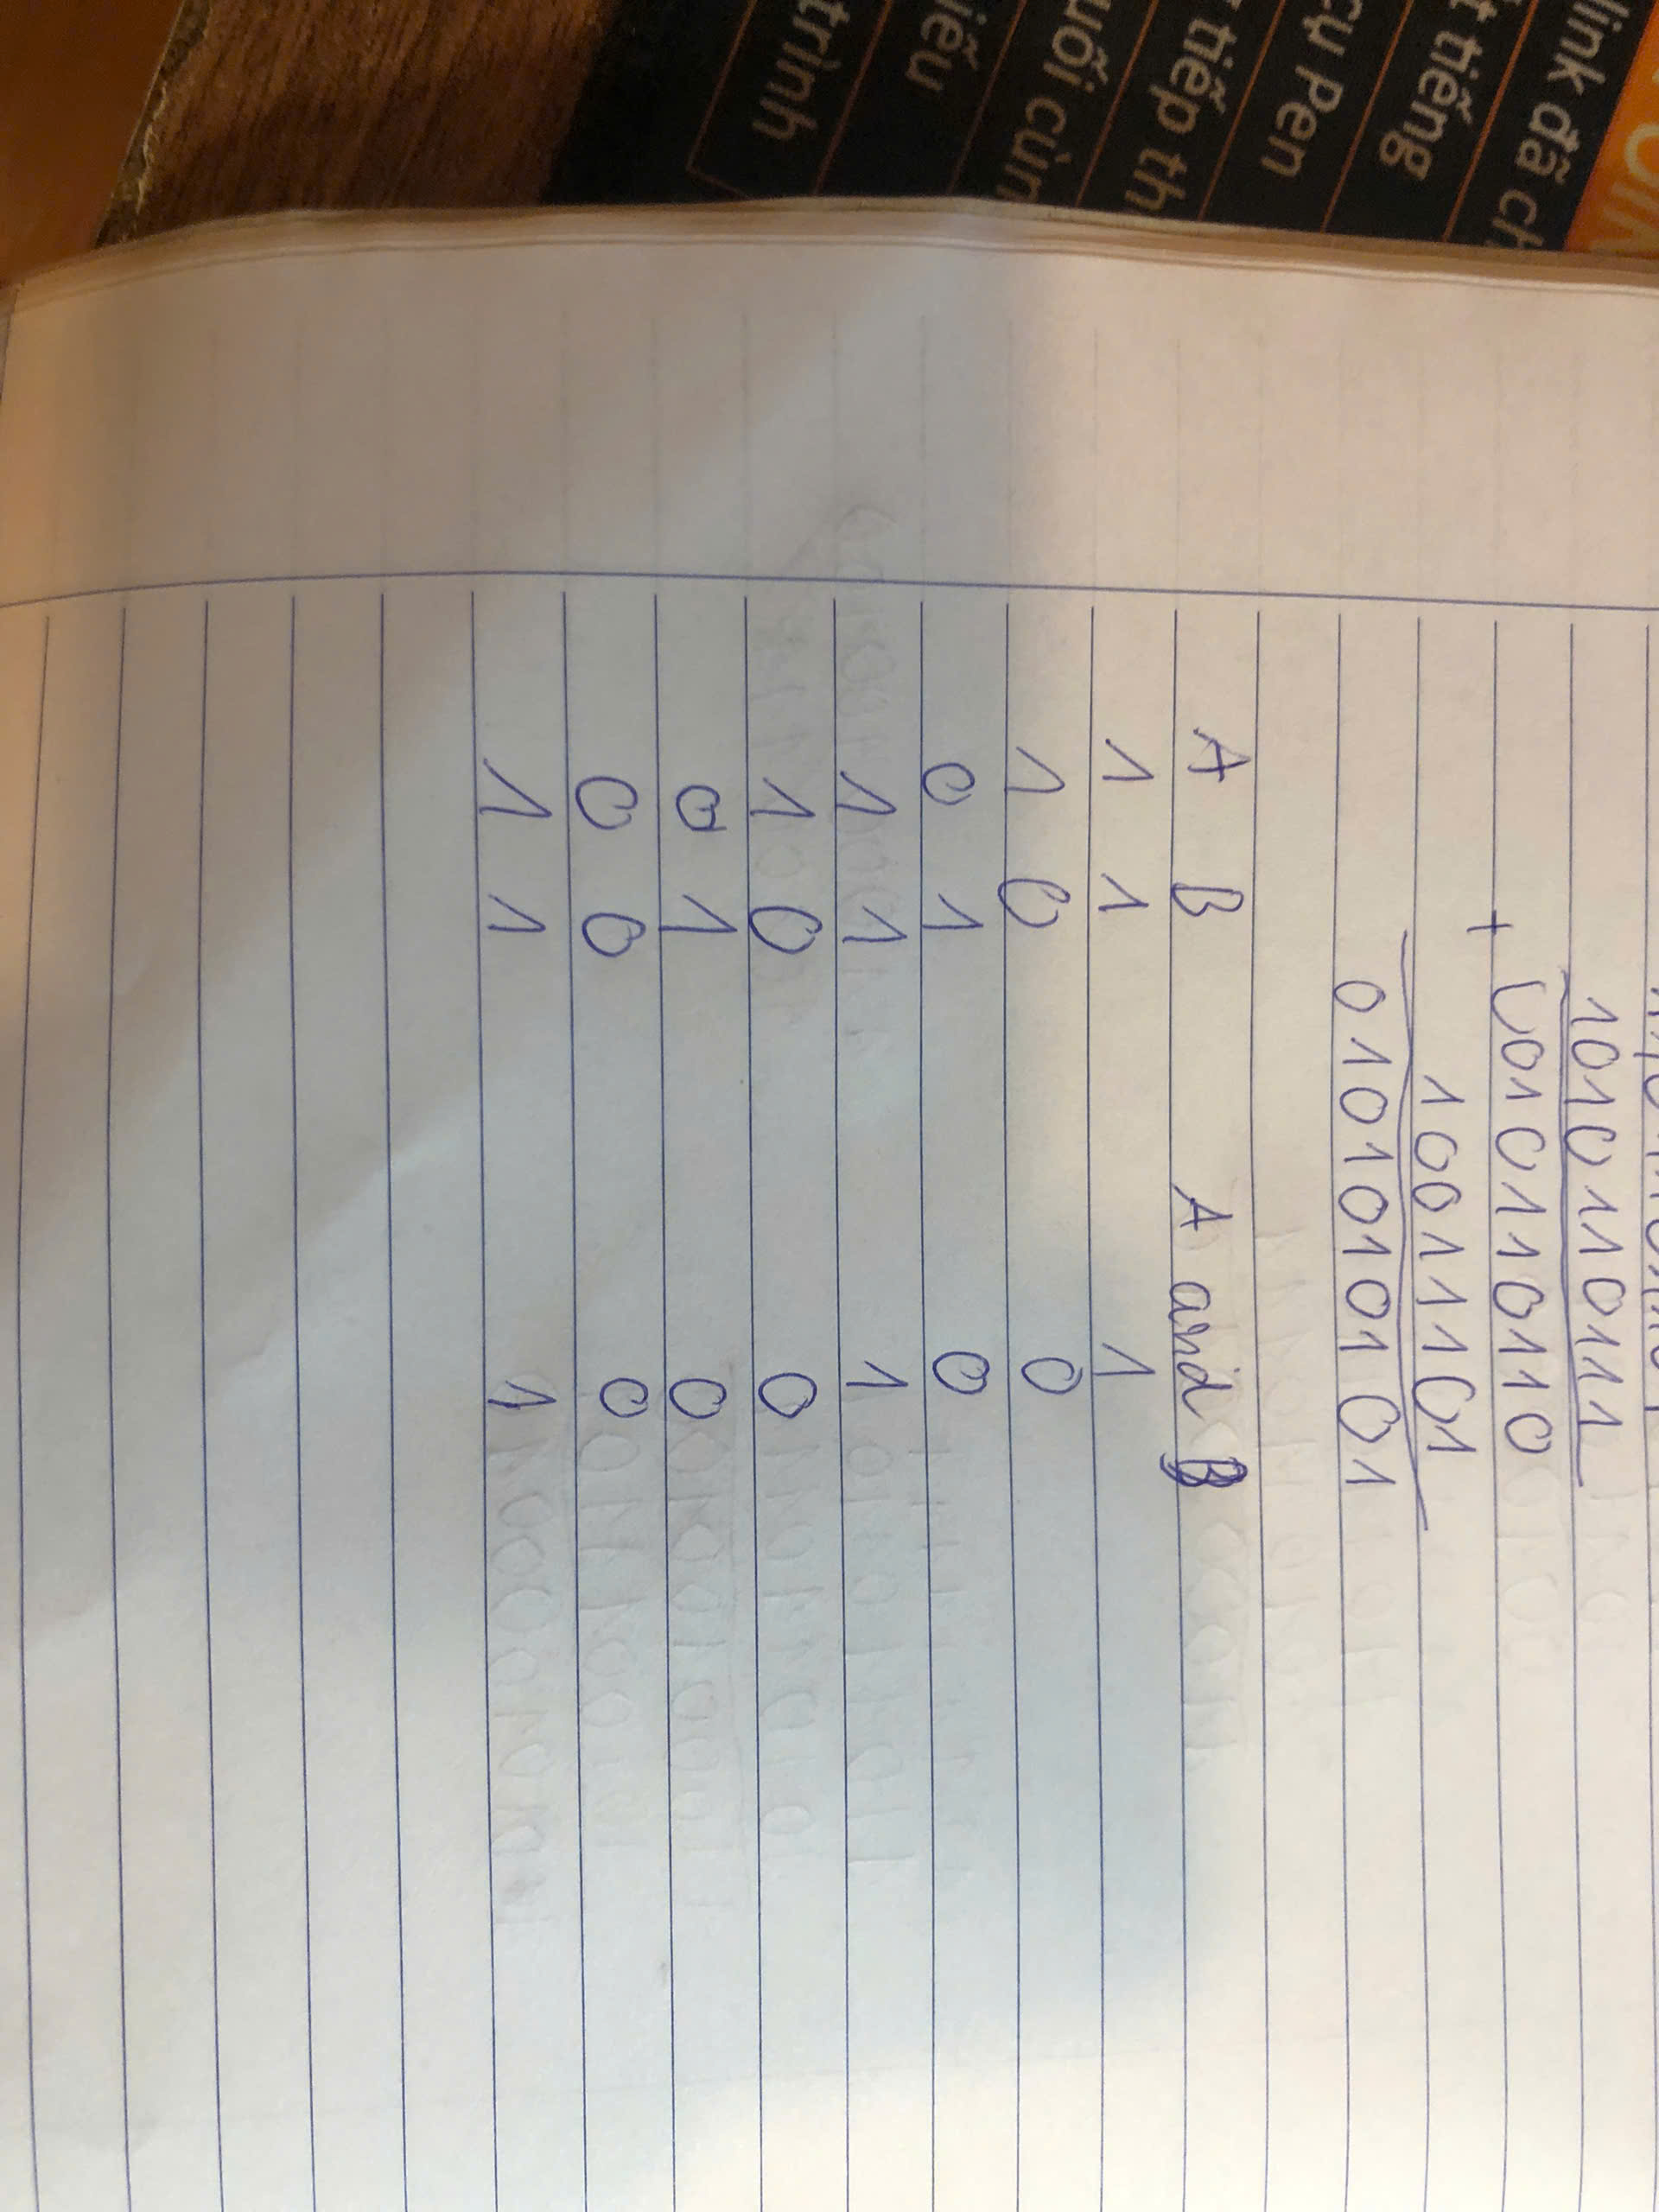 link đã ch
t tiếng
cụ Pen
tiếp th
uối cùn
iếu
trình
1010110111
+ 0010110110
10011101
0101010101
A B A and B
1 1 1
1 0 0
0 1 0
1 1 1
1 0 0
0 1 0
0 0 0
1 1 1